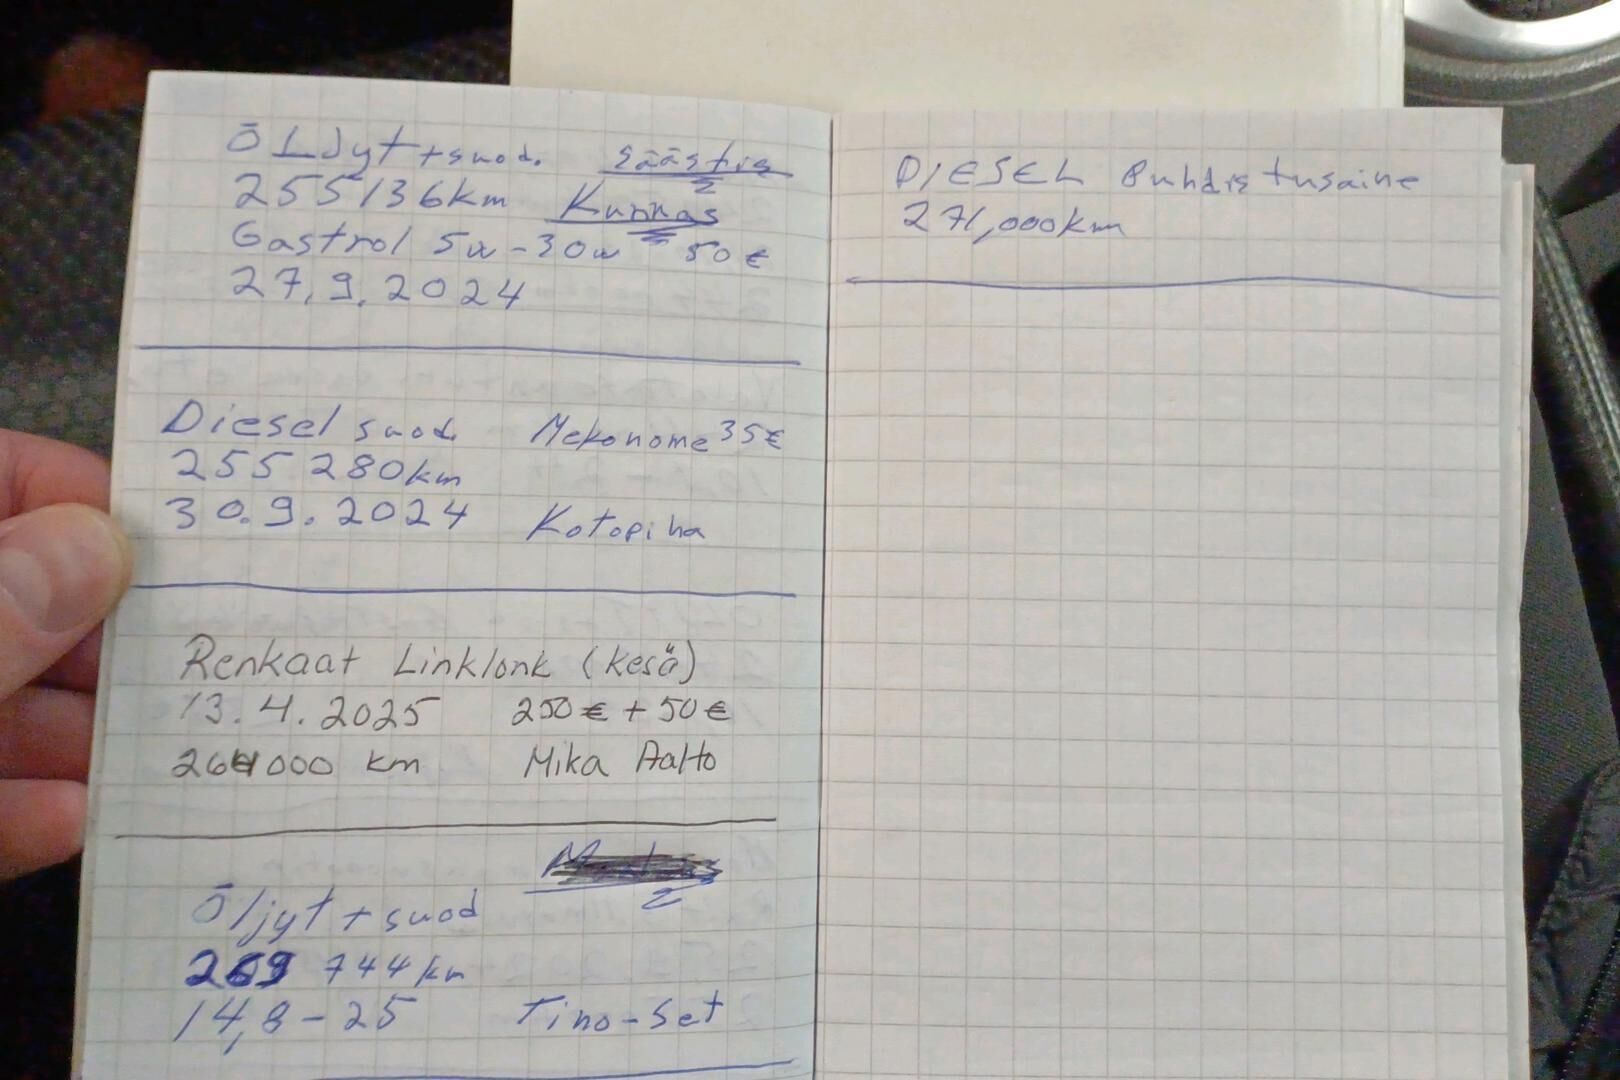 Öljyt + suod. säästis
255136km Kunnas
Gastrol 5w-30w 50€
27.9.2024
Diesel suod. Mekonome 35€
255 280km
30.9.2024 Kotopiha
Renkaat Linklonk (kesä)
13.4.2025 250€ + 50€
264000 km Mika Aalto
Öljyt + suod
269 744km
14,8-25 Tino-set
DIESEL Puhdistusaine
271,000km